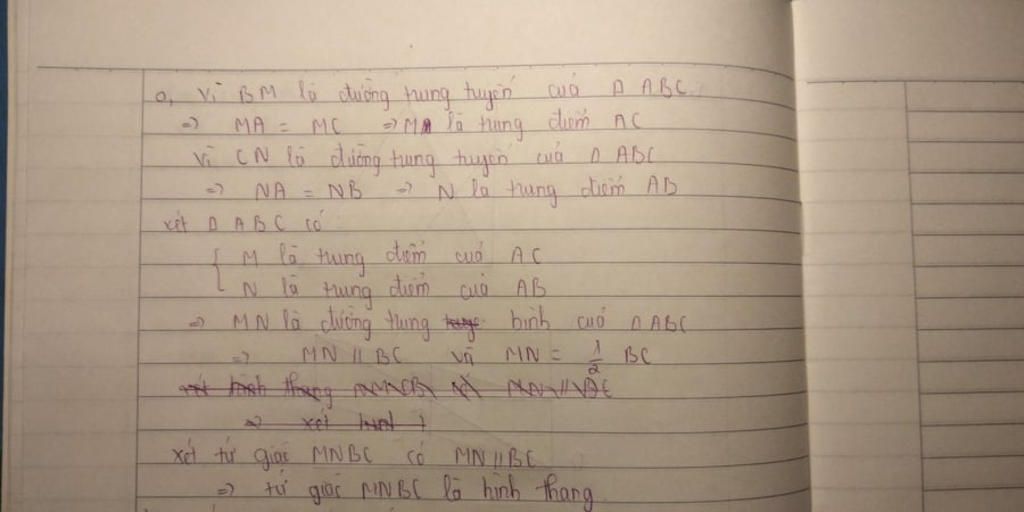 a, Vì BM là đường trung tuyến của Δ ABC
=> MA = MC => M là trung điểm AC
Vì CN là đường trung tuyến của Δ ABC
=> NA = NB => N là trung điểm AB
xét Δ ABC có
{ M là trung điểm của AC
N là trung điểm của AB
=> MN là đường trung bình của Δ ABC
=> MN // BC và MN = 1/2 BC
xét hình thang
=> xét hình
xét tứ giác MNBC có MN // BC
=> tứ giác MNBC là hình thang